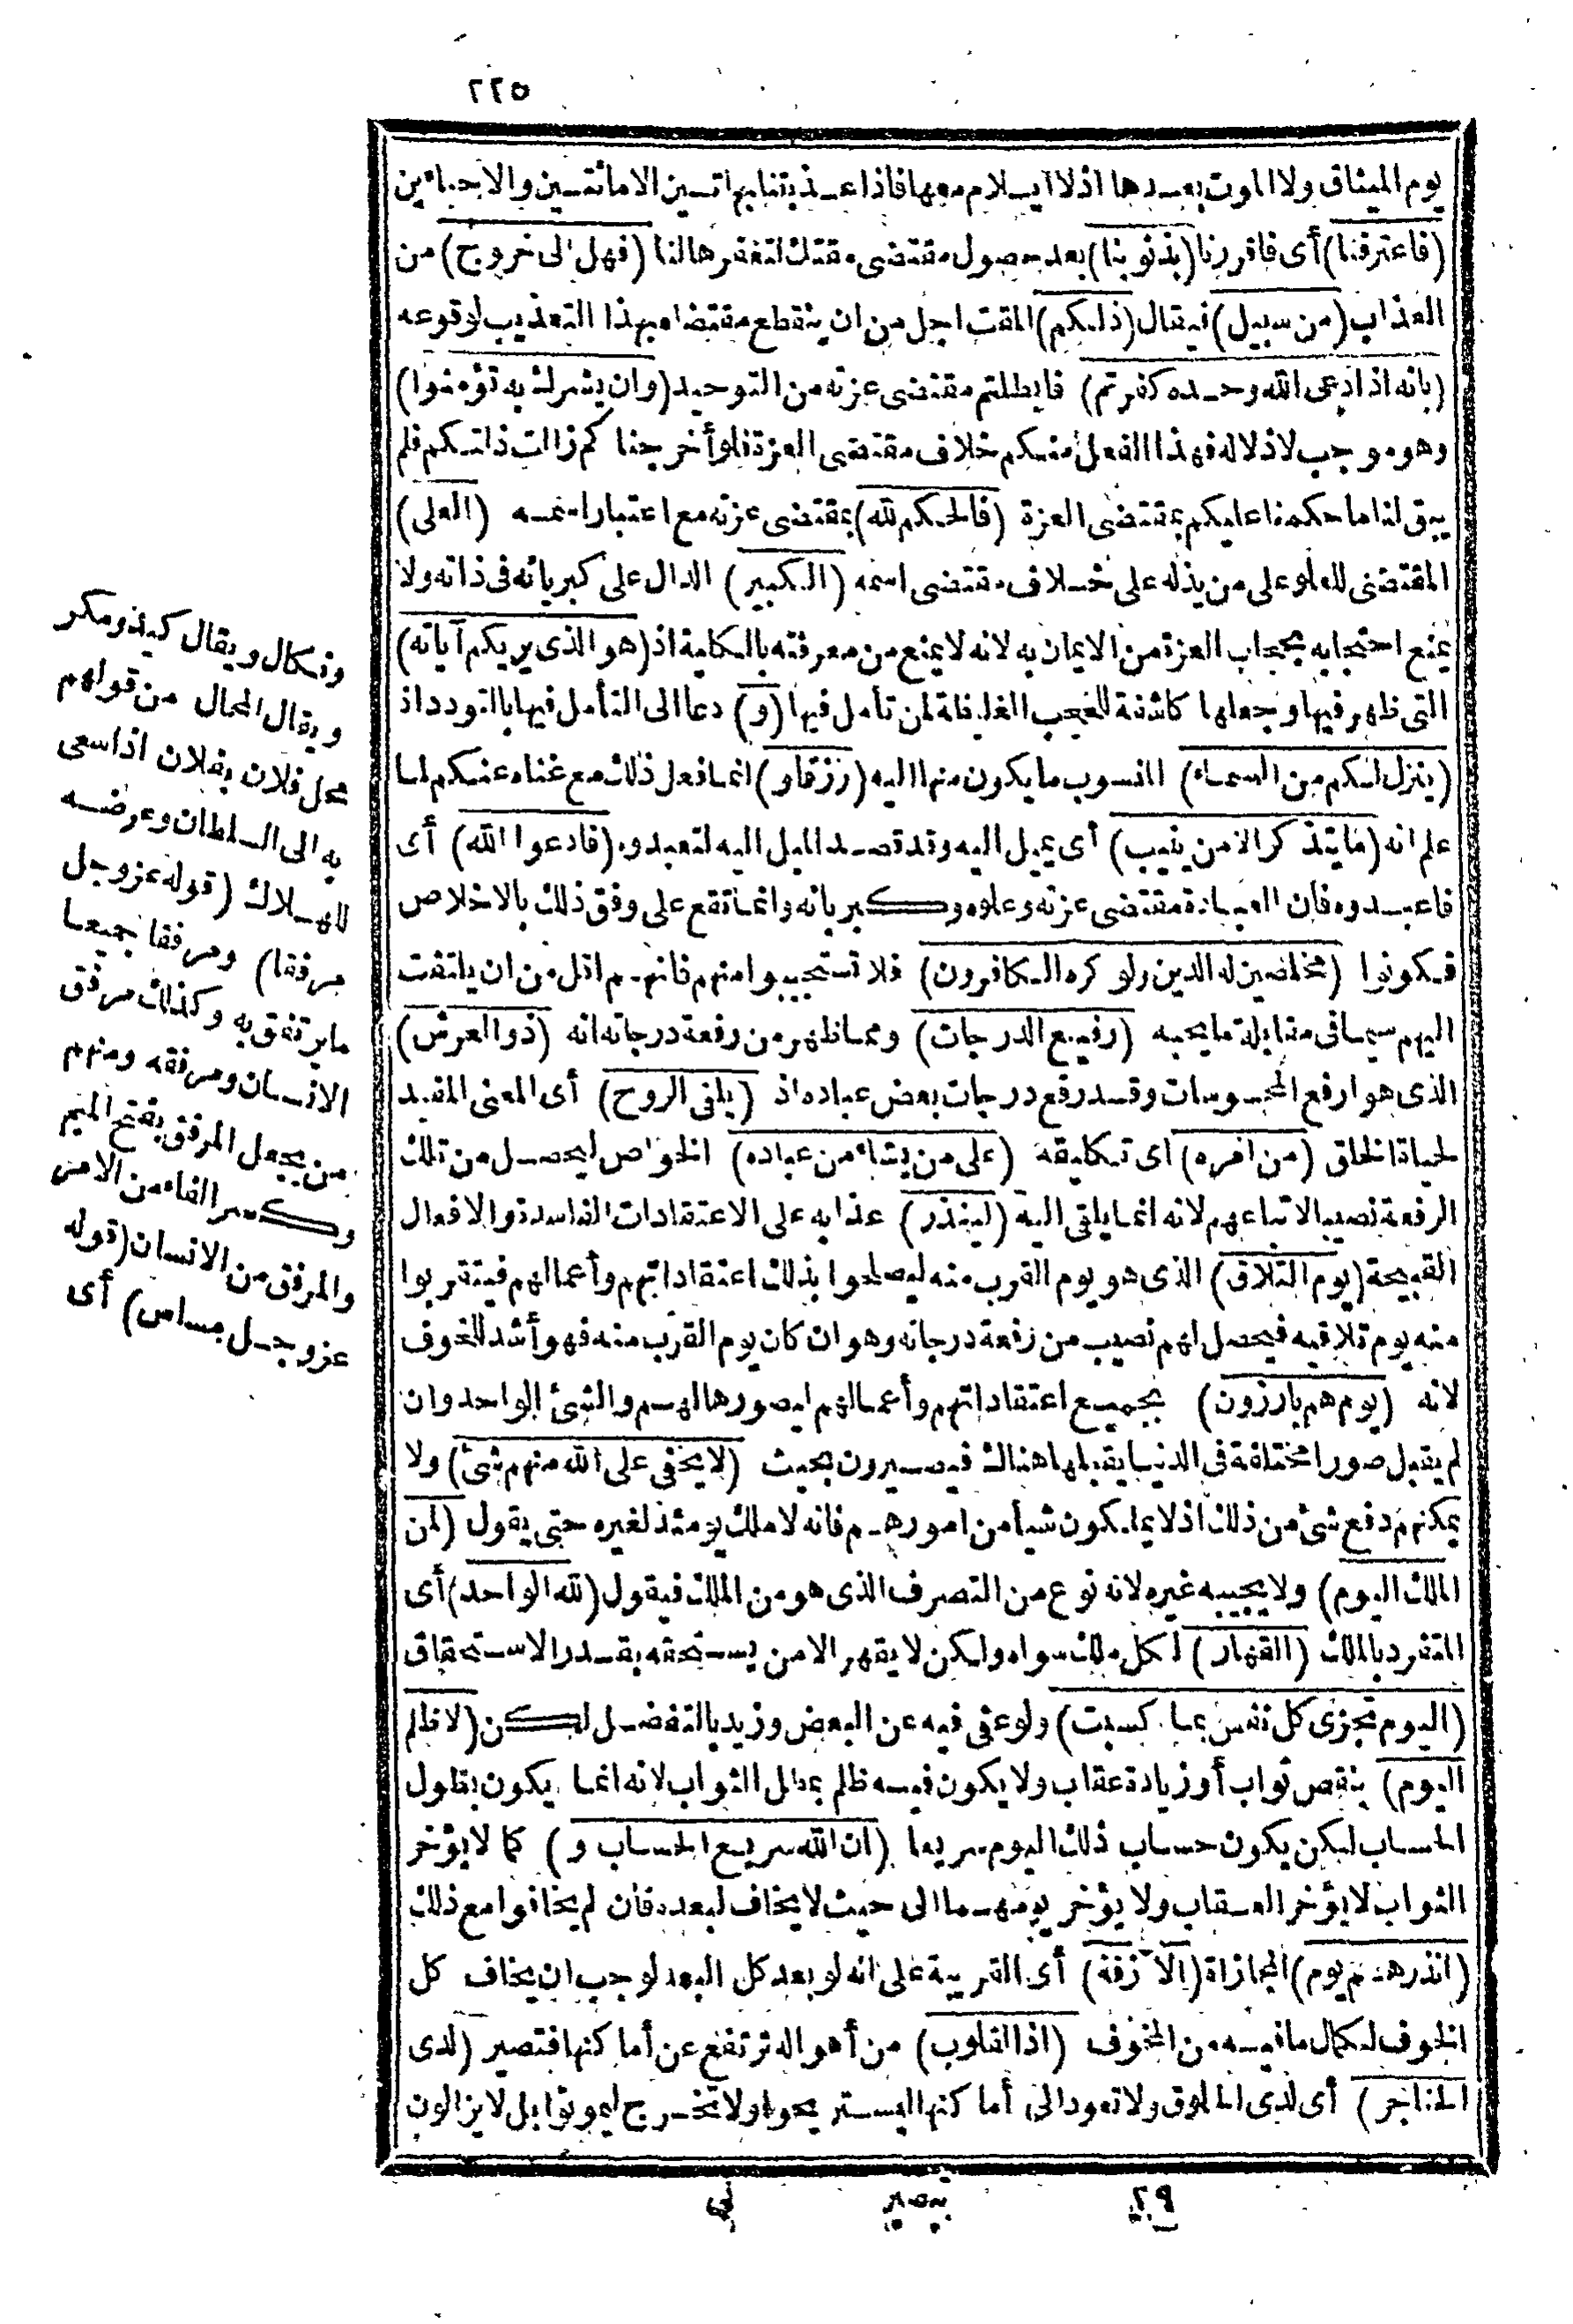 ٢٢٥
يوم الميثاق ولا الموت بعدها اذ لا ايلام معها فاذا عذبتنا بهاتين الاماتتين والاحياءين
(فاعترفنا) أى فاقررنا (بذنوبنا) بعد حصول مقتضى مقتك لتغفرها لنا (فهل الى خروج) من
العذاب (من سبيل) فيقال (ذلكم) المقت اجل من ان ينقطع مقتضاه بهذا التعذيب لوقوعه
(بانه اذا دعى الله وحده كفرتم) فابطلتم مقتضى عزته من التوحيد (وان يشرك به تؤمنوا)
وهو موجب لاذلاله فهذا الفعل منكم خلاف مقتضى العزة فلو أخرجناكم زالت ذلتكم فلم
يبق لنا ما حكمنا عليكم بمقتضى العزة (فالحكم لله) بمقتضى عزته مع اعتبار اسمه (العلى)
المقتضى للعلو على من يذله على خلاف مقتضى اسمه (الكبير) الدال على كبريائه فى ذاته ولا
يمنع احتجابه بحجاب العزة من الايمان به لانه لا يمنع من معرفته بالكلية اذ (هو الذى يريكم آياته)
التى ظهر فيها وجعلها كاشفة للحجب الغليظة لمن تأمل فيها (و) دعا الى التأمل فيها بالتودد اذ
(ينزل لكم من السماء) المنسوب ما يكون منها اليه (رزقاو) انما فعل ذلك مع غناه عنكم لما
علم انه (ما يتذكر الا من ينيب) أى يميل اليه وقد قصد الميل اليه لتعبدوه (فادعوا الله) أى
فاعبدوه فان العبادة مقتضى عزته وعلوه وكبريائه وانما تقع على وفق ذلك بالاخلاص
فكونوا (مخلصين له الدين ولو كره الكافرون) فلا تستجيبوا منهم فانهم اقل من ان يلتفت
اليهم سيما فى مقابلة ما يحبه (رفيع الدرجات) ومما ظهر من رفعة درجاته انه (ذو العرش)
الذى هو ارفع المحسوسات وقد رفع درجات بعض عباده اذ (يلقى الروح) أى المعنى المفيد
لحياة الخلق (من امره) اى تكليفه (على من يشاء من عباده) الخواص ليحصل من تلك
الرفعة نصيب الاتباعهم لانه انما يلقى اليه (لينذر) عذابه على الاعتقادات الفاسدة والافعال
القبيحة (يوم التلاق) الذى هو يوم القرب منه ليصلحوا بذلك اعتقاداتهم وأعمالهم فيتقربوا
منه يوم تلاقيه فيحصل لهم نصيب من رفعة درجاته وهو ان كان يوم القرب منه فهو أشد للخوف
لانه (يوم هم بارزون) بجميع اعتقاداتهم وأعمالهم ليصورها لهم والشئ الواحد وان
لم يقبل صورا مختلفة فى الدنيا يقبلها هناك فيصيرون بحيث (لا يخفى على الله منهم شئ) ولا
يمكنهم دفع شئ من ذلك اذ لا يملكون شيأ من امورهم فانه لا ملك يومئذ لغيره حتى يقول (لمن
الملك اليوم) ولا يجيبه غيره لانه نوع من التصرف الذى هو من الملك فيقول (لله الواحد) أى
المتفرد بالملك (القهار) لكل ملك سواه ولكن لا يقهر الا من يستحقه بقدر الاستحقاق
(اليوم تجزى كل نفس بما كسبت) ولو عفى فيه عن البعض وزيد بالتفضل لكن (لا ظلم
اليوم) بنقص ثواب أو زيادة عقاب ولا يكون فيه ظلم بمطل الثواب لانه انما يكون بطول
الحساب لكن يكون حساب ذلك اليوم سريعا (ان الله سريع الحساب و) كما لا يؤخر
الثواب لا يؤخر العقاب ولا يؤخر يومهما الى حيث لا يخاف لبعده فان لم يخافوا مع ذلك
(انذرهم يوم) المجازاة (الآزفة) أى القريبة على انه لو بعد كل البعد لوجب ان يخاف كل
الخوف لكمال ما فيه من المخوف (اذ القلوب) من أهواله ترتفع عن أماكنها فتصير (لدى
الحناجر) أى لدى الحلوق ولا تعود الى أماكنها ليستريحوا ولا تخرج ليموتوا بل لا يزالون
ونكال ويقال كيد ومكر
ويقال المحال من قولهم
محل فلان بفلان اذا سعى
به الى السلطان وعرضه
للهلاك (قوله عز وجل
مرفقا) ومرفقا جميعا
ما يرتفق به وكذلك مرفق
الانسان ومرفقه ومنهم
من يجعل المرفق بفتح الميم
وكسر الفاء من الامر
والمرفق من الانسان (قوله
عز وجل مساس) أى
٢٩ تبصير نى